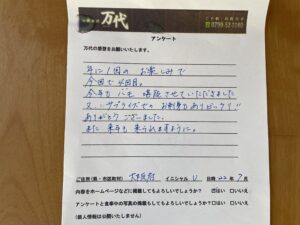 万代
ご予約・お問合せ
☎0799-52-1180
アンケート
万代の感想をお願いいたします。
年に1回の お楽しみで
今回で4回目。
今年も ハモ 堪能させていただきました
又、サプライズでの お刺身もありビックリ!!
ありがとう ございました。
また 来年も 来られますように。
ご住所(県・市区町村) 大阪府 イニシャル U 日時 22年 7月
内容をホームページなどに掲載してもよろしいでしょうか? ☑はい □いいえ
アンケートと食事中の写真の掲載もしてもよろしいでしょうか? ☑はい □いいえ
(個人情報は公開いたしません)